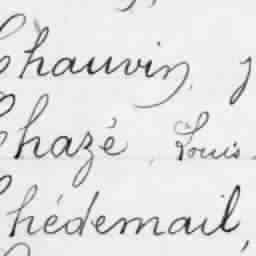 Chauvin,
Chazé, Louis
Chédemail,